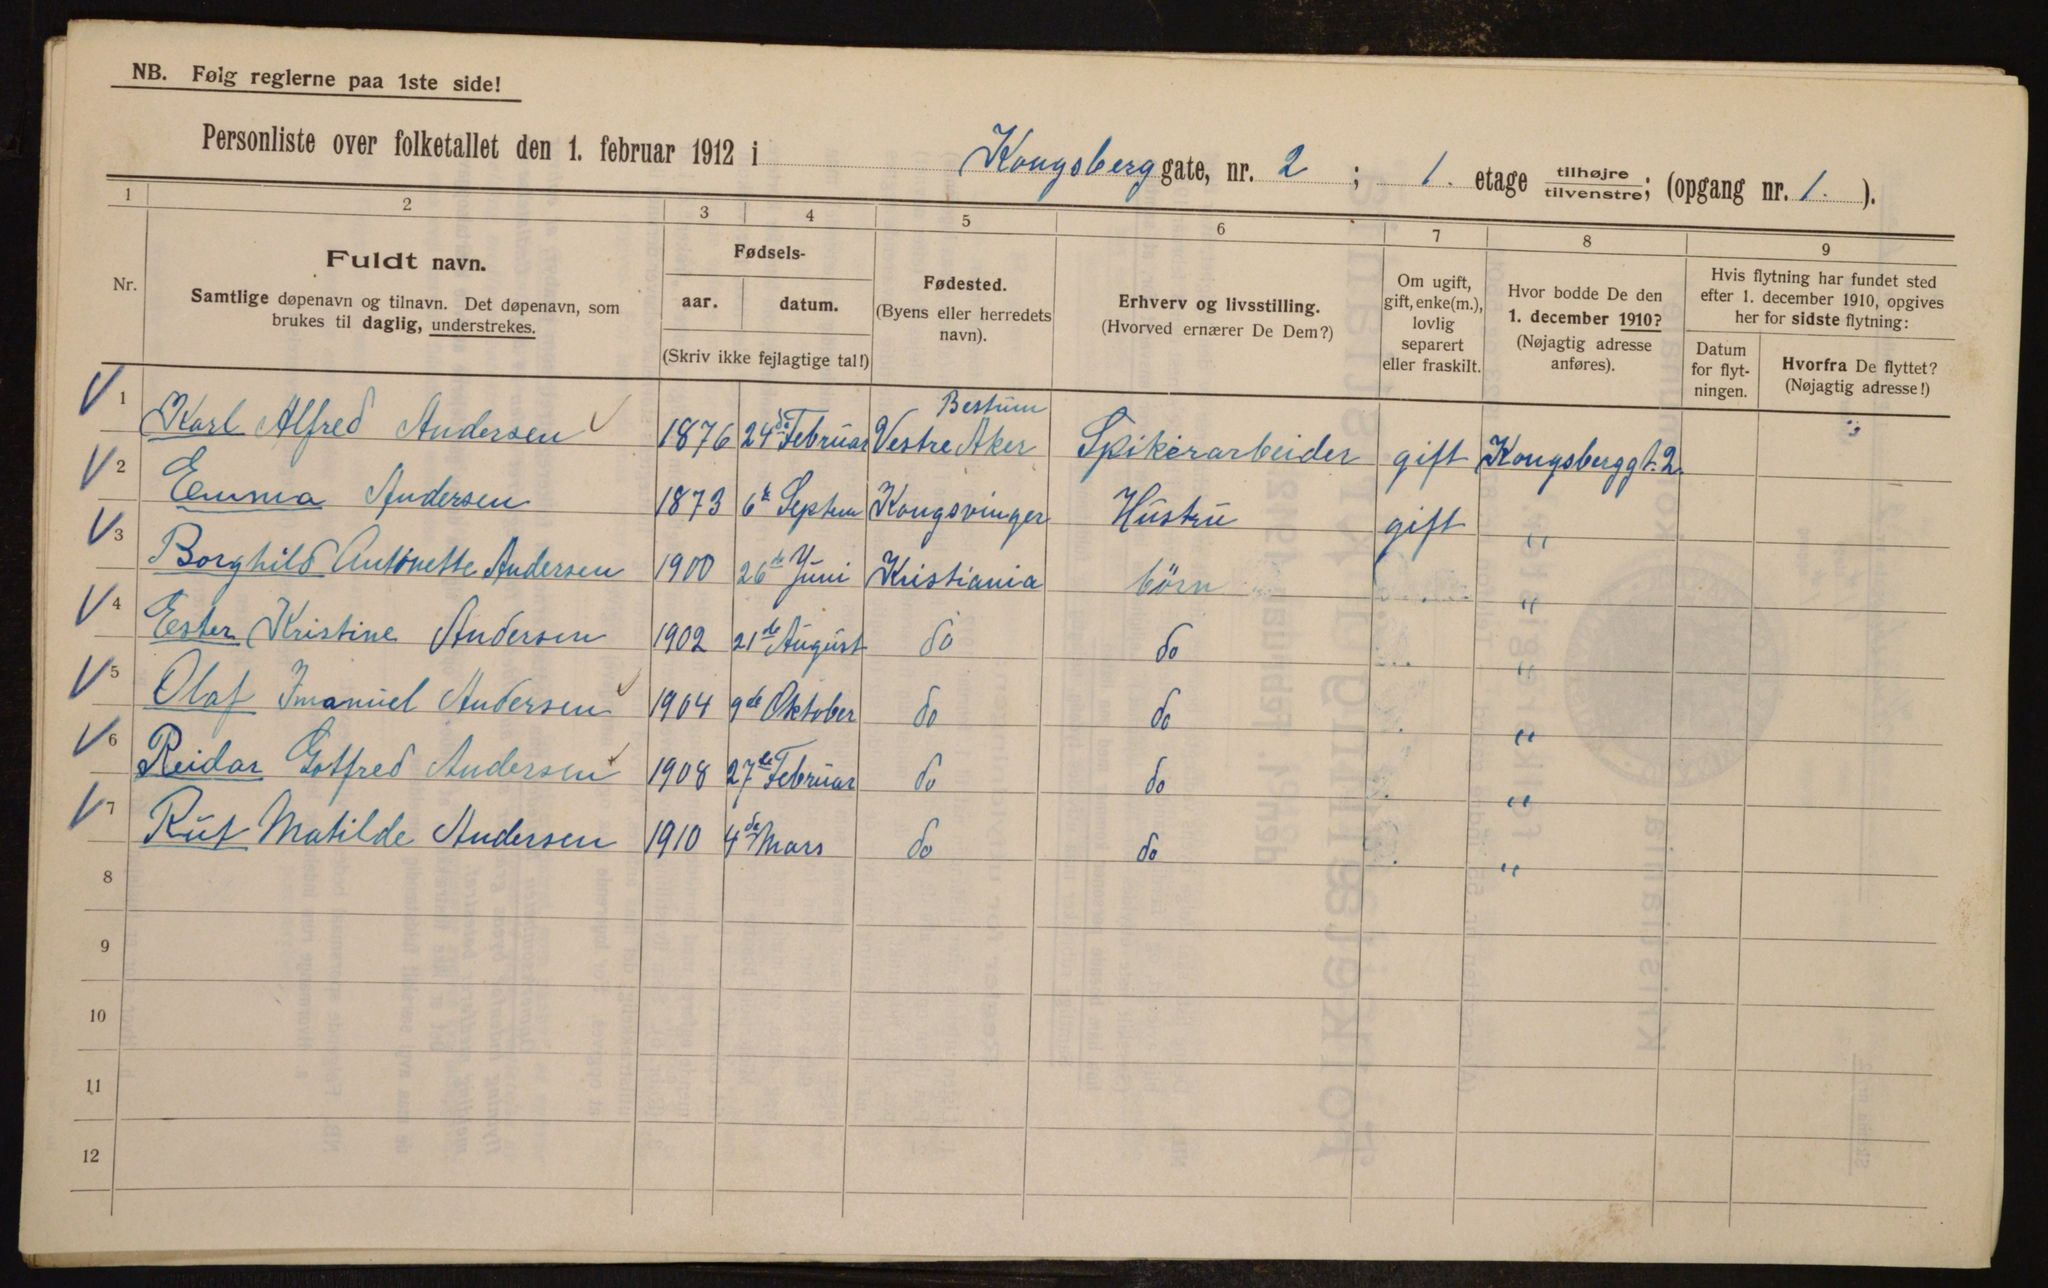 NB. Følg reglerne paa 1ste side!
Personliste over folketallet den 1. februar 1912 i Kongsberg gate, nr. 2 ; 1. etage tilhøjre/tilvenstre; (opgang nr. 1. ).
1 2 3 4 5 6 7 8 9
Nr.
Fuldt navn.
Samtlige døpenavn og tilnavn. Det døpenavn, som
brukes til daglig, understrekes.
Fødsels-
aar. datum.
(Skriv ikke fejlagtige tal!)
Fødested.
(Byens eller herredets
navn).
Erhverv og livsstilling.
(Hvorved ernærer De Dem?)
Om ugift,
gift, enke(m.),
lovlig
separert
eller fraskilt.
Hvor bodde De den
1. december 1910?
(Nøjagtig adresse
anføres).
Hvis flytning har fundet sted
efter 1. december 1910, opgives
her for sidste flytning:
Datum
for flyt-
ningen.
Hvorfra De flyttet?
(Nøjagtig adresse!)
Bestum
1 Karl Alfred Andersen 1876 24de Februar Vestre Aker Spikerarbeider gift Kongsberggt. 2.
2 Emma Andersen 1873 6te Septem Kongsvinger Hustru gift "
3 Borghild Antonette Andersen 1900 26de Juni Kristiania børn "
4 Ester Kristine Andersen 1902 21de August do do "
5 Olaf Imanuel Andersen 1904 9de Oktober do do "
6 Reidar Gotfred Andersen 1908 27de Februar do do "
7 Rut Matilde Andersen 1910 4de Mars do do "
8
9
10
11
12